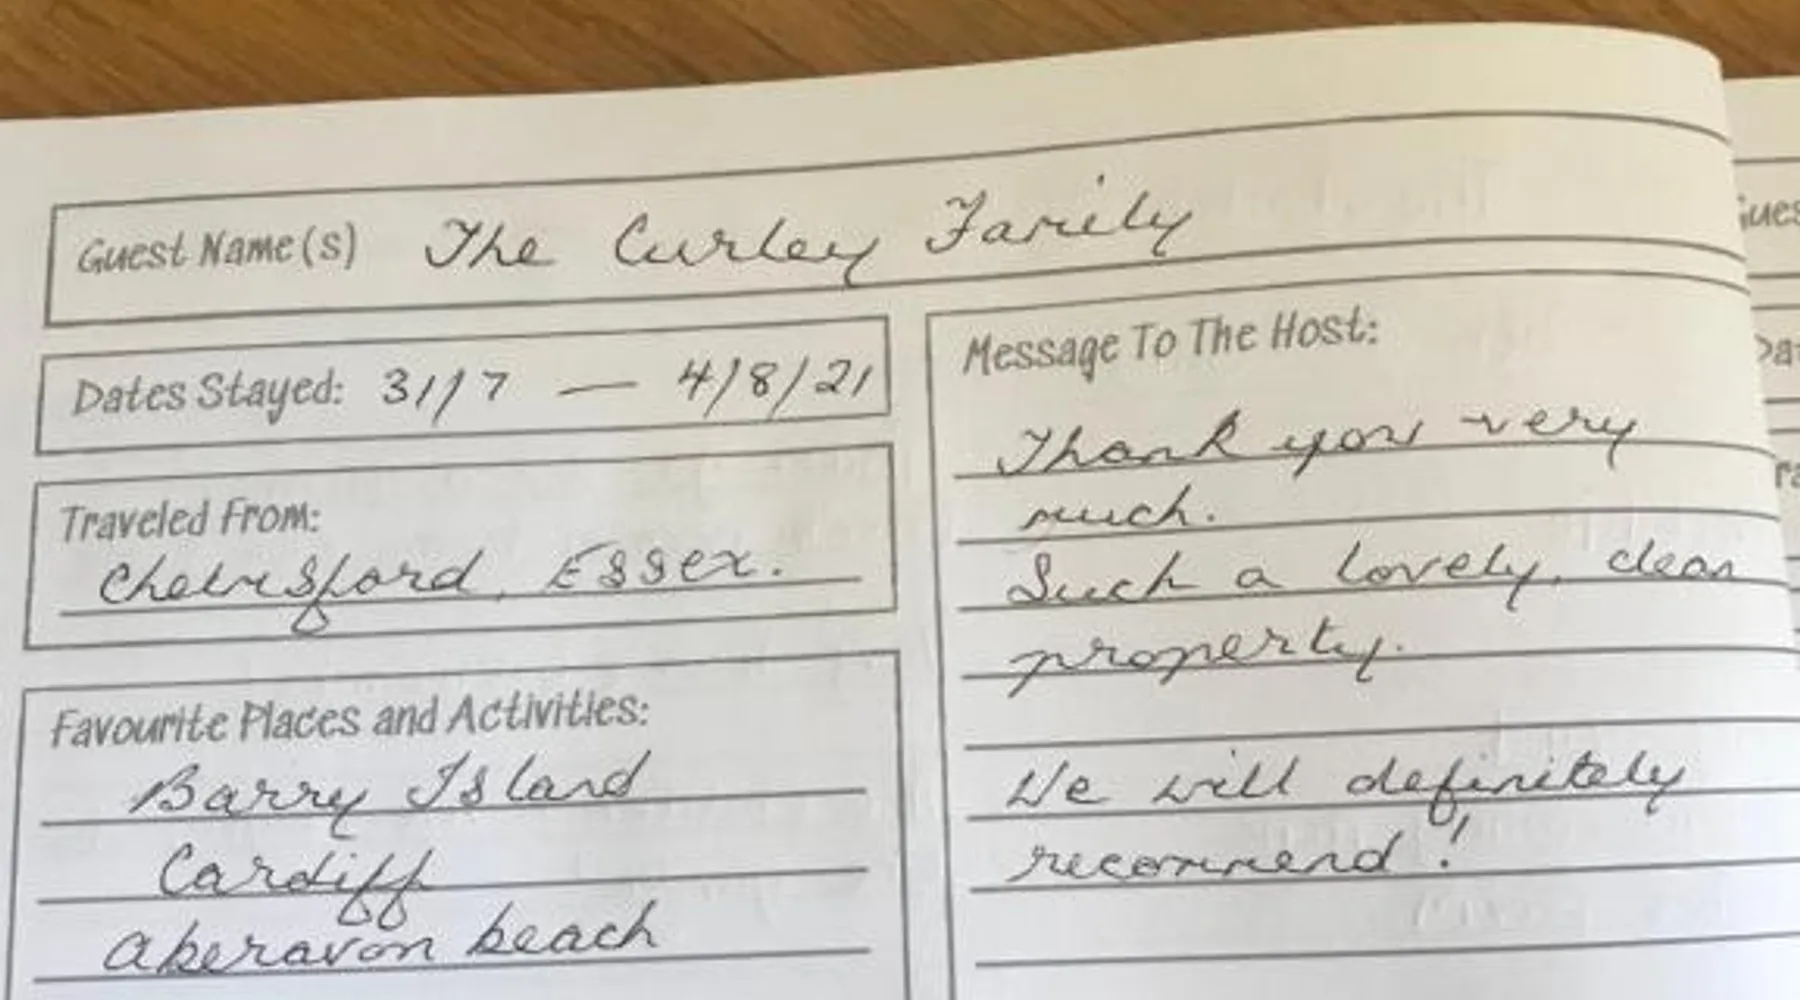 Guest Name(s) The Curley Family
Dates Stayed: 31/7 — 4/8/21
Traveled From:
Chelmsford, Essex.
Favourite Places and Activities:
Barry Island
Cardiff
Aberavon beach
Message To The Host:
Thank you very
much.
Such a lovely, clean
property.
We will definitely
recommend!